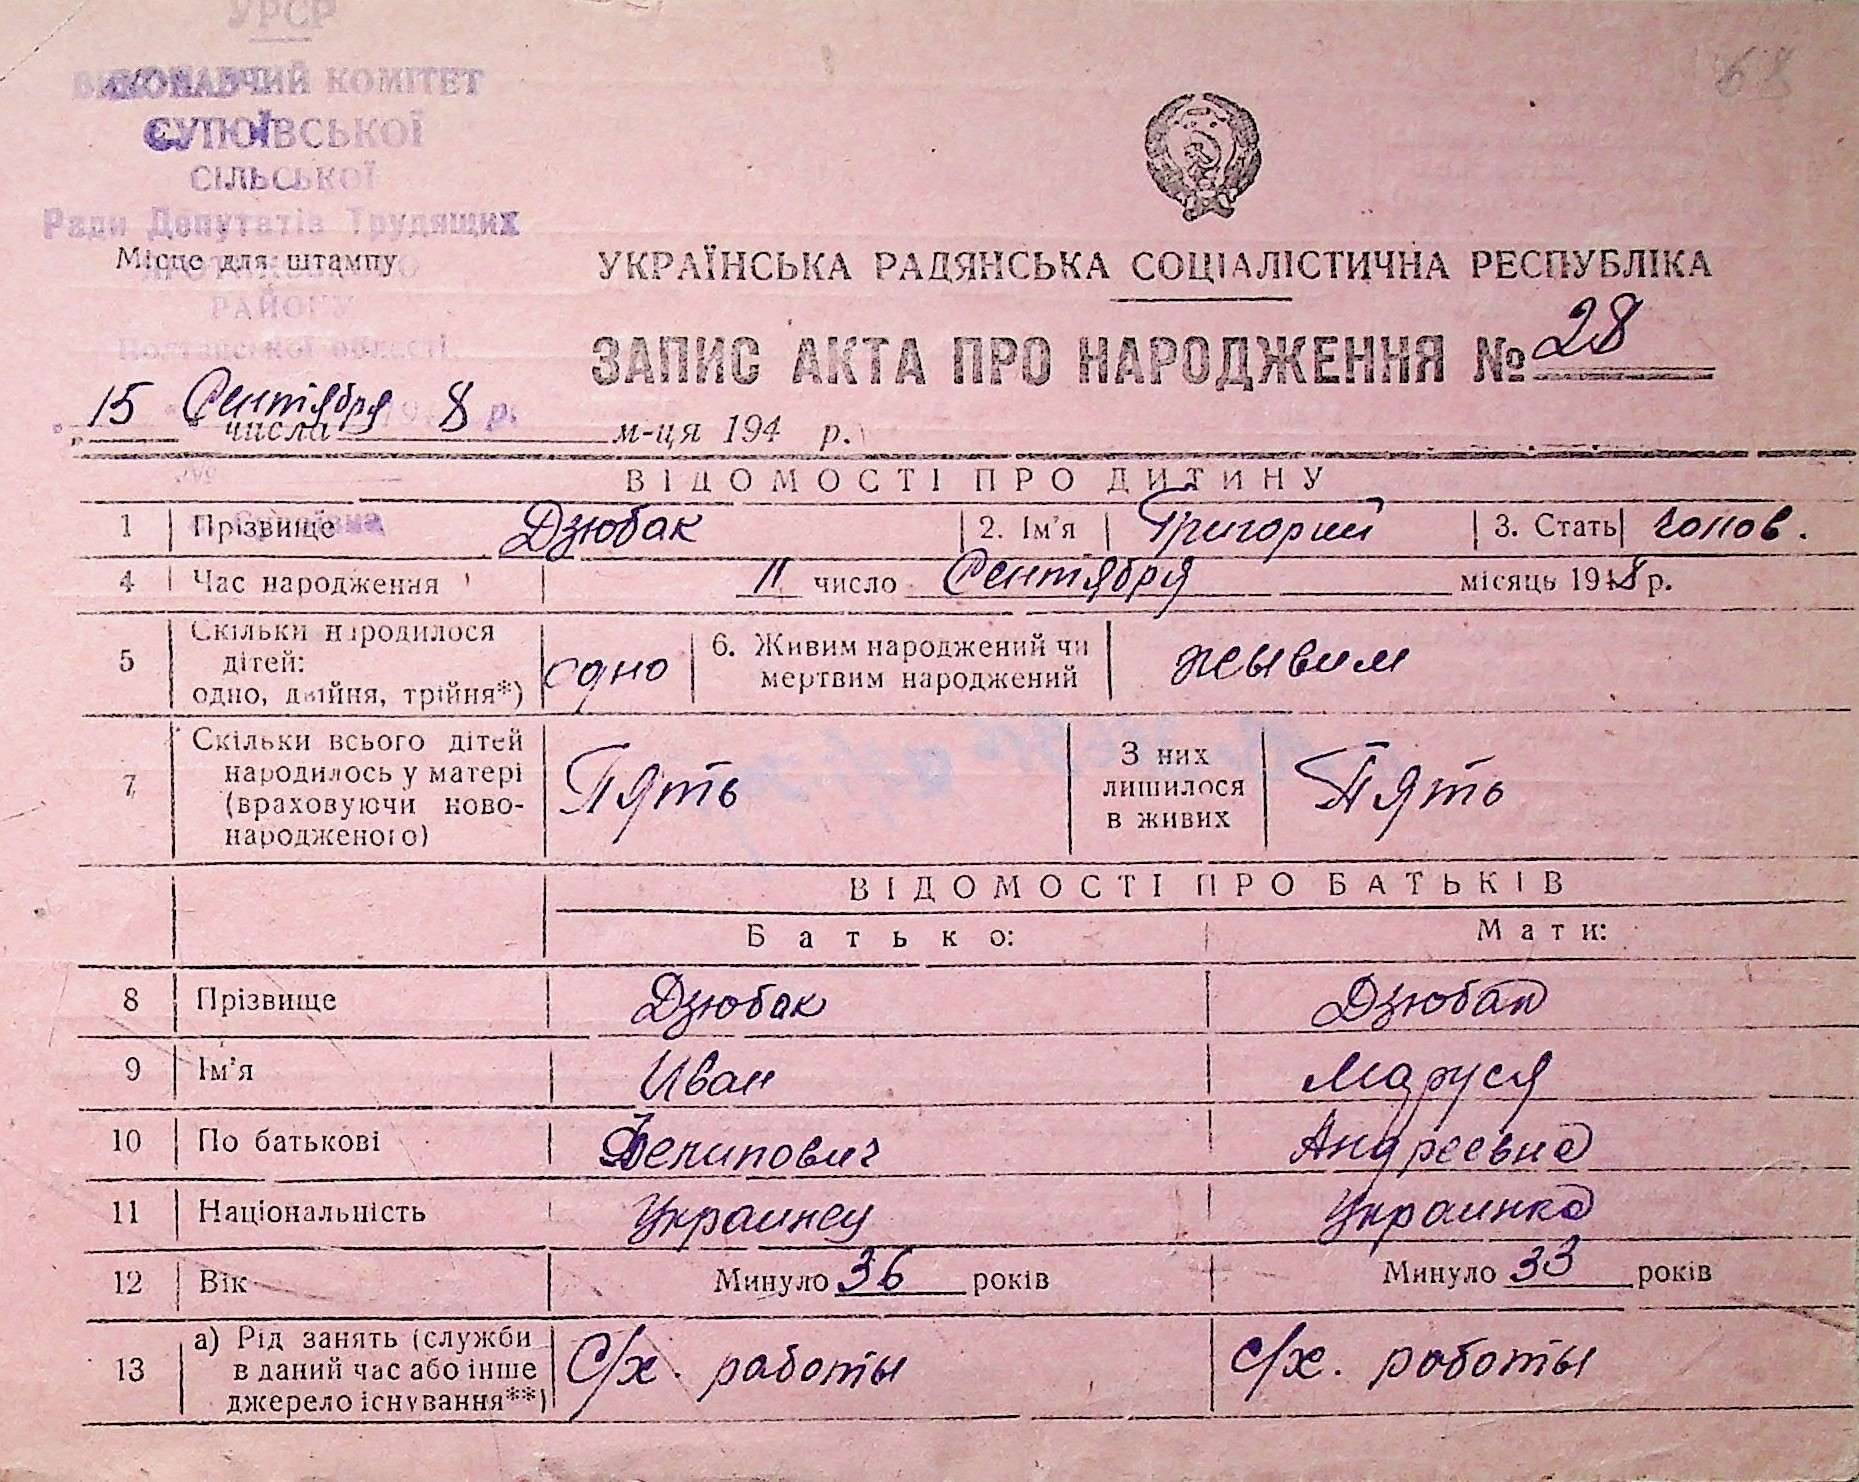 УРСР
68
ВИКОНАВЧИЙ КОМІТЕТ
СІЛЬСЬКОЇ
Ради Депутатів Трудящих
Місце для штампу
РАЙОНУ
Полтавської області
УКРАЇНСЬКА РАДЯНСЬКА СОЦІАЛІСТИЧНА РЕСПУБЛІКА
ЗАПИС АКТА ПРО НАРОДЖЕННЯ № 28
15 числа Сентября 8 м-ця 194 р.
ВІДОМОСТІ ПРО ДИТИНУ
1 Прізвище Дзюбак 2. Ім'я Григорий 3. Стать чолов.
4 Час народження 11 число Сентября місяць 1948 р.
5 Скільки народилося дітей: одно, двійня, трійня*) одно 6. Живим народжений чи мертвим народжений жывим
7 Скільки всього дітей народилось у матері (враховуючи ново-народженого) Пять З них лишилося в живих Пять
ВІДОМОСТІ ПРО БАТЬКІВ
Батько: Мати:
8 Прізвище Дзюбак Дзюбак
9 Ім'я Иван Маруся
10 По батькові Филипович Андреевна
11 Національність Украинец Украинка
12 Вік Минуло 36 років Минуло 33 років
13 а) Рід занять (служби в даний час або інше джерело існування**) С/х. работы С/х. работы